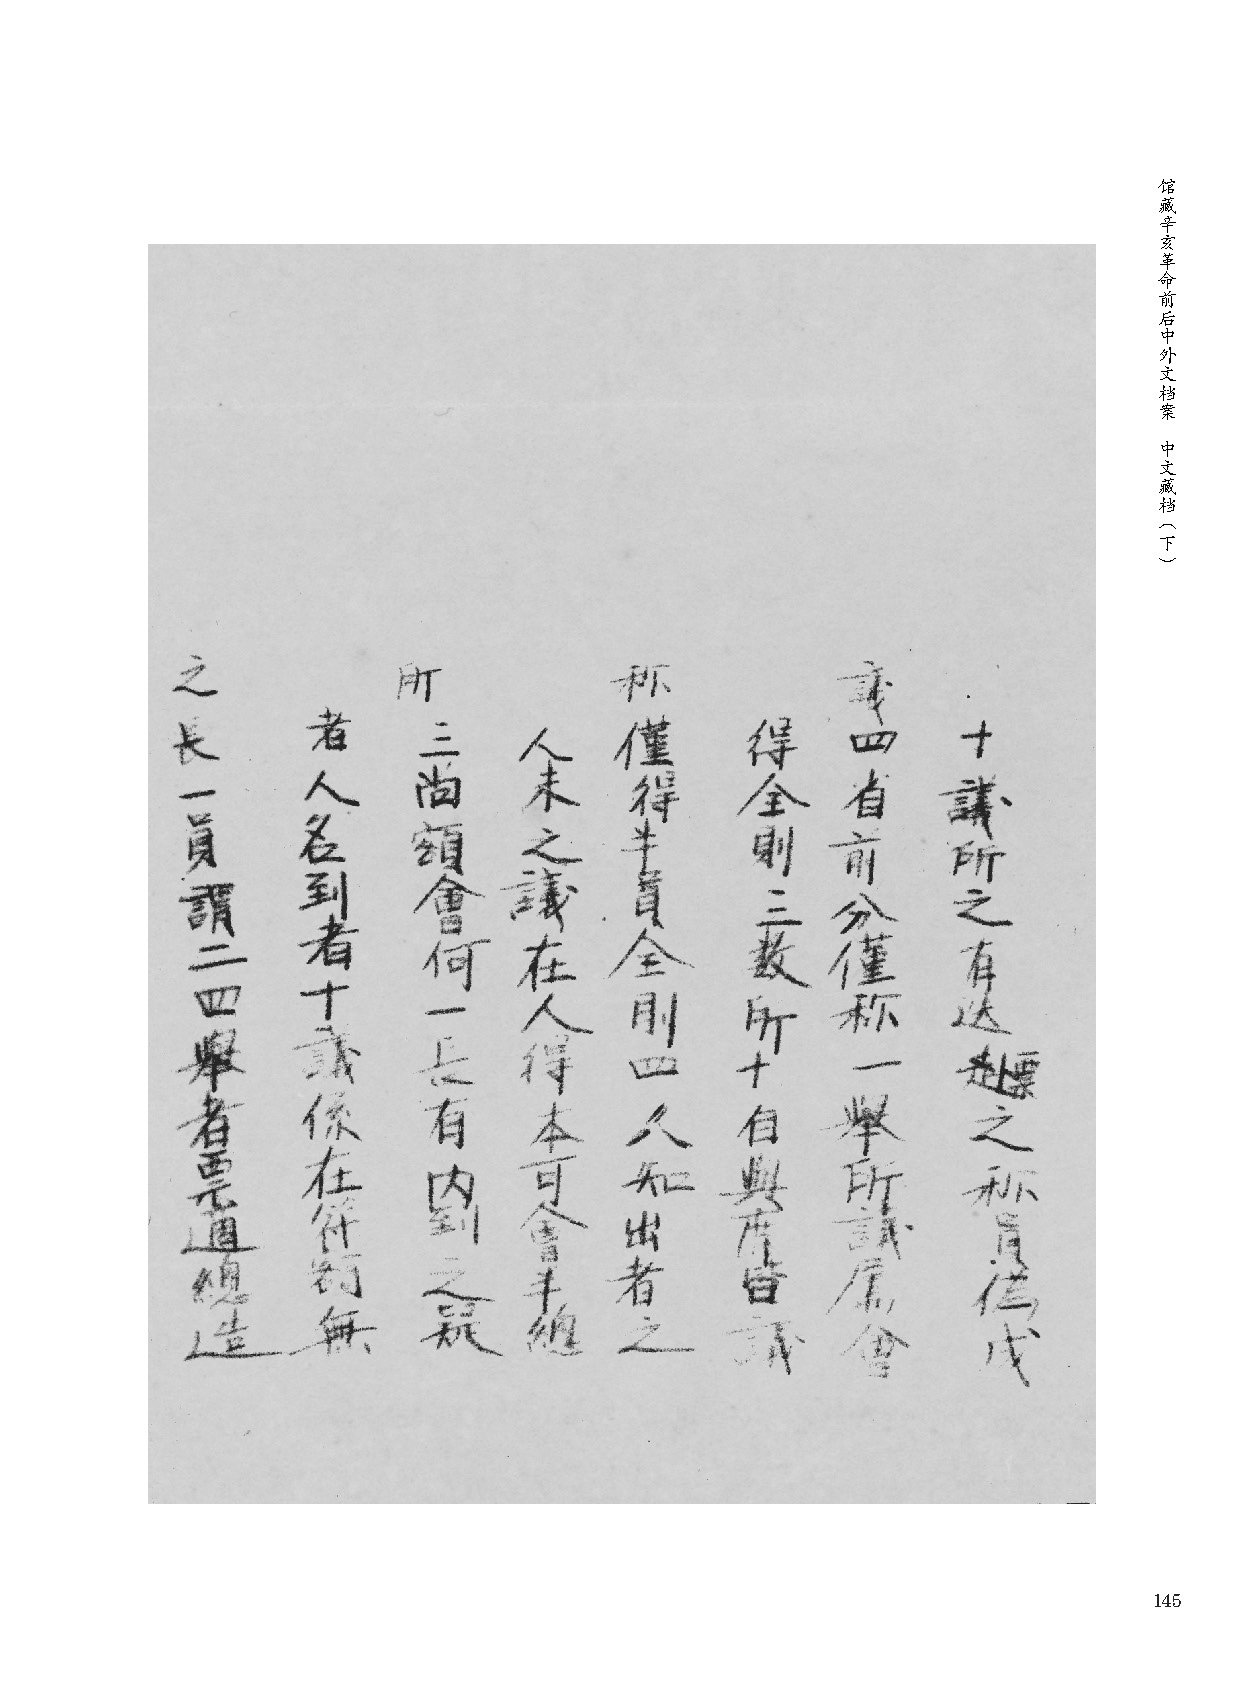 馆藏辛亥革命前后中外文档案 中文藏档（下）
十議所之有达票之称員偽成
議四省前分僅称一舉所議屬會
得全則三数所十自與席皆議
称僅得半員全則四人知出者之
人未之議在人得本可會半總
所三尚額會何一長有内到之疑
者人名到者十議係在併到無
之長一員謂二四舉者票道總造
145